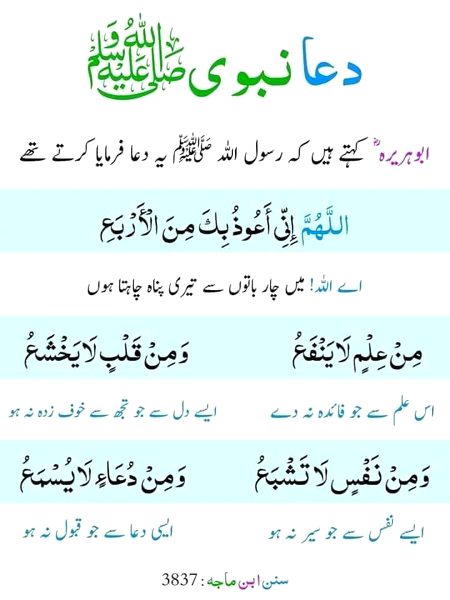 دعا نبوی ﷺ
ابوہریرہؓ کہتے ہیں کہ رسول اللہ ﷺ یہ دعا فرمایا کرتے تھے
اللَّهُمَّ إِنِّي أَعُوذُ بِكَ مِنَ الْأَرْبَعِ
اے اللہ! میں چار باتوں سے تیری پناہ چاہتا ہوں
مِنْ عِلْمٍ لَا يَنْفَعُ وَمِنْ قَلْبٍ لَا يَخْشَعُ
اس علم سے جو فائدہ نہ دے ایسے دل سے جو تجھ سے خوف زدہ نہ ہو
وَمِنْ نَفْسٍ لَا تَشْبَعُ وَمِنْ دُعَاءٍ لَا يُسْمَعُ
ایسے نفس سے جو سیر نہ ہو ایسی دعا سے جو قبول نہ ہو
سنن ابن ماجہ : 3837